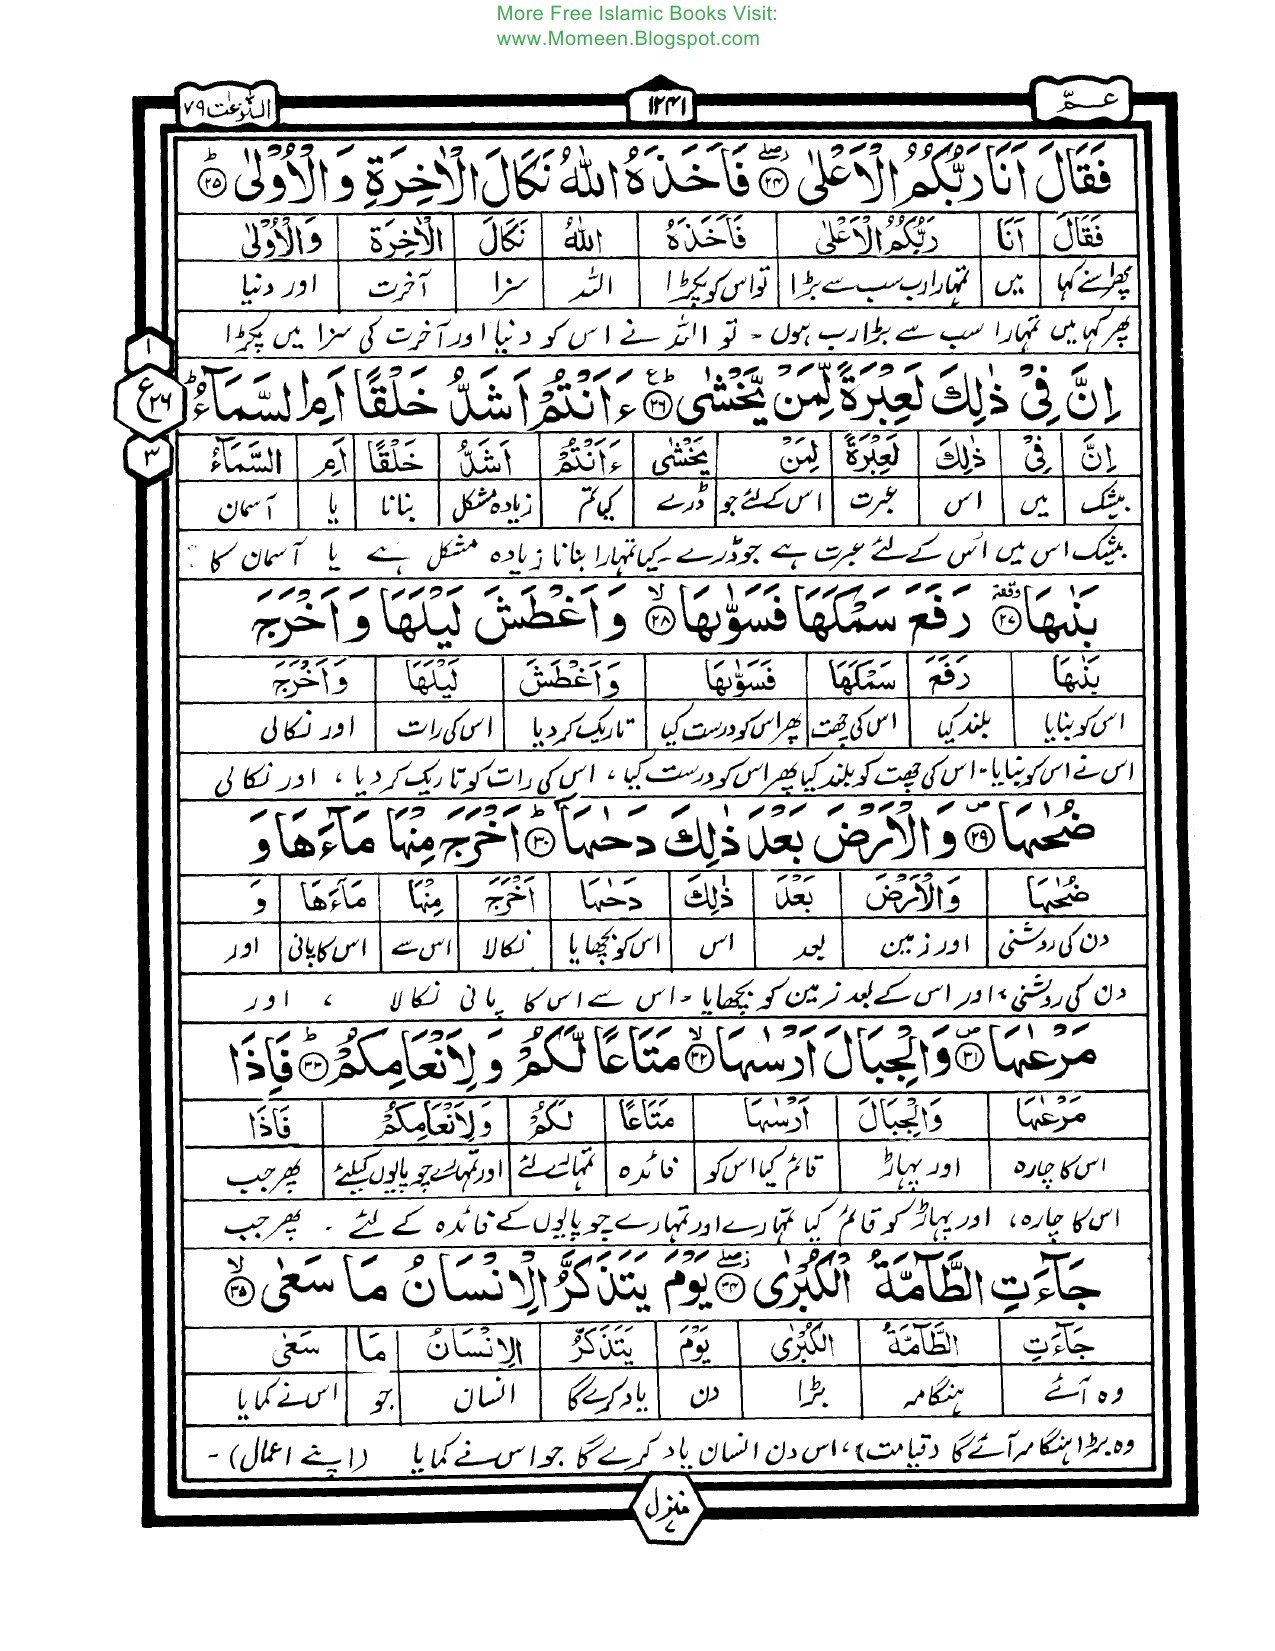 More Free Islamic Books Visit:
www.Momeen.Blogspot.com
عـــمّ
۱۲۴۱
النّٰزعٰت ۷۹
فَقَالَ اَنَا رَبُّكُمُ الْاَعْلٰى ۲۴ فَاَخَذَهُ اللّٰهُ نَكَالَ الْاٰخِرَةِ وَالْاُوْلٰى ۲۵
فَقَالَ اَنَا رَبُّكُمُ الْاَعْلٰى فَاَخَذَهُ اللّٰهُ نَكَالَ الْاٰخِرَةِ وَالْاُوْلٰى
پھر اسنے کہا میں تمہارا رب سب سے بڑا تو اس کو پکڑا اللہ سزا آخرت اور دنیا
پھر کہا میں تمہارا سب سے بڑا رب ہوں - تو اللہ نے اس کو دنیا اور آخرت کی سزا میں پکڑا
۱
اِنَّ فِيْ ذٰلِكَ لَعِبْرَةً لِّمَنْ يَّخْشٰى ۲۶ ءَاَنْتُمْ اَشَدُّ خَلْقًا اَمِ السَّمَآءُ
ع ۲۶
اِنَّ فِيْ ذٰلِكَ لَعِبْرَةً لِمَنْ يَخْشٰى ءَاَنْتُمْ اَشَدُّ خَلْقًا اَمِ السَّمَآءُ
۳
بیشک میں اس عبرت اس کے لئے جو ڈرے کیا تم زیادہ مشکل بنانا یا آسمان
بیشک اس میں اس کے لئے عبرت ہے جو ڈرے - کیا تمہارا بنانا زیادہ مشکل ہے یا آسمان کا ؟
بَنٰىهَا ۲۷ رَفَعَ سَمْكَهَا فَسَوّٰىهَا ۲۸ وَاَغْطَشَ لَيْلَهَا وَاَخْرَجَ
بَنٰىهَا رَفَعَ سَمْكَهَا فَسَوّٰىهَا وَاَغْطَشَ لَيْلَهَا وَاَخْرَجَ
اس کو بنایا بلند کیا اس کی چھت پھر اس کو درست کیا تاریک کر دیا اس کی رات اور نکالی
اس نے اس کو بنایا - اس کی چھت کو بلند کیا پھر اس کو درست کیا ، اس کی رات کو تاریک کر دیا ، اور نکالی
ضُحٰىهَا ۲۹ وَالْاَرْضَ بَعْدَ ذٰلِكَ دَحٰىهَا ۳۰ اَخْرَجَ مِنْهَا مَآءَهَا وَ
ضُحٰىهَا وَالْاَرْضَ بَعْدَ ذٰلِكَ دَحٰىهَا اَخْرَجَ مِنْهَا مَآءَهَا وَ
دن کی روشنی اور زمین بعد اس اس کو بچھایا نکالا اس سے اس کا پانی اور
دن کی روشنی ، اور اس کے بعد زمین کو بچھایا - اس سے اس کا پانی نکالا ، اور
مَرْعٰىهَا ۳۱ وَالْجِبَالَ اَرْسٰىهَا ۳۲ مَتَاعًا لَّكُمْ وَلِاَنْعَامِكُمْ ۳۳ فَاِذَا
مَرْعٰىهَا وَالْجِبَالَ اَرْسٰىهَا مَتَاعًا لَكُمْ وَلِاَنْعَامِكُمْ فَاِذَا
اس کا چارہ اور پہاڑ قائم کیا اس کو فائدہ تمہارے لئے اور تمہارے چوپایوں کیلئے پھر جب
اس کا چارہ، اور پہاڑ کو قائم کیا تمہارے اور تمہارے چوپایوں کے فائدہ کے لئے - پھر جب
جَآءَتِ الطَّآمَّةُ الْكُبْرٰى ۳۴ يَوْمَ يَتَذَكَّرُ الْاِنْسَانُ مَا سَعٰى ۳۵
جَآءَتِ الطَّآمَّةُ الْكُبْرٰى يَوْمَ يَتَذَكَّرُ الْاِنْسَانُ مَا سَعٰى
وہ آئے ہنگامہ بڑا دن یاد کرے گا انسان جو اس نے کمایا
وہ بڑا ہنگامہ آئے گا (قیامت) ، اس دن انسان یاد کرے گا جو اس نے کمایا (اپنے اعمال) -
منزل ۷